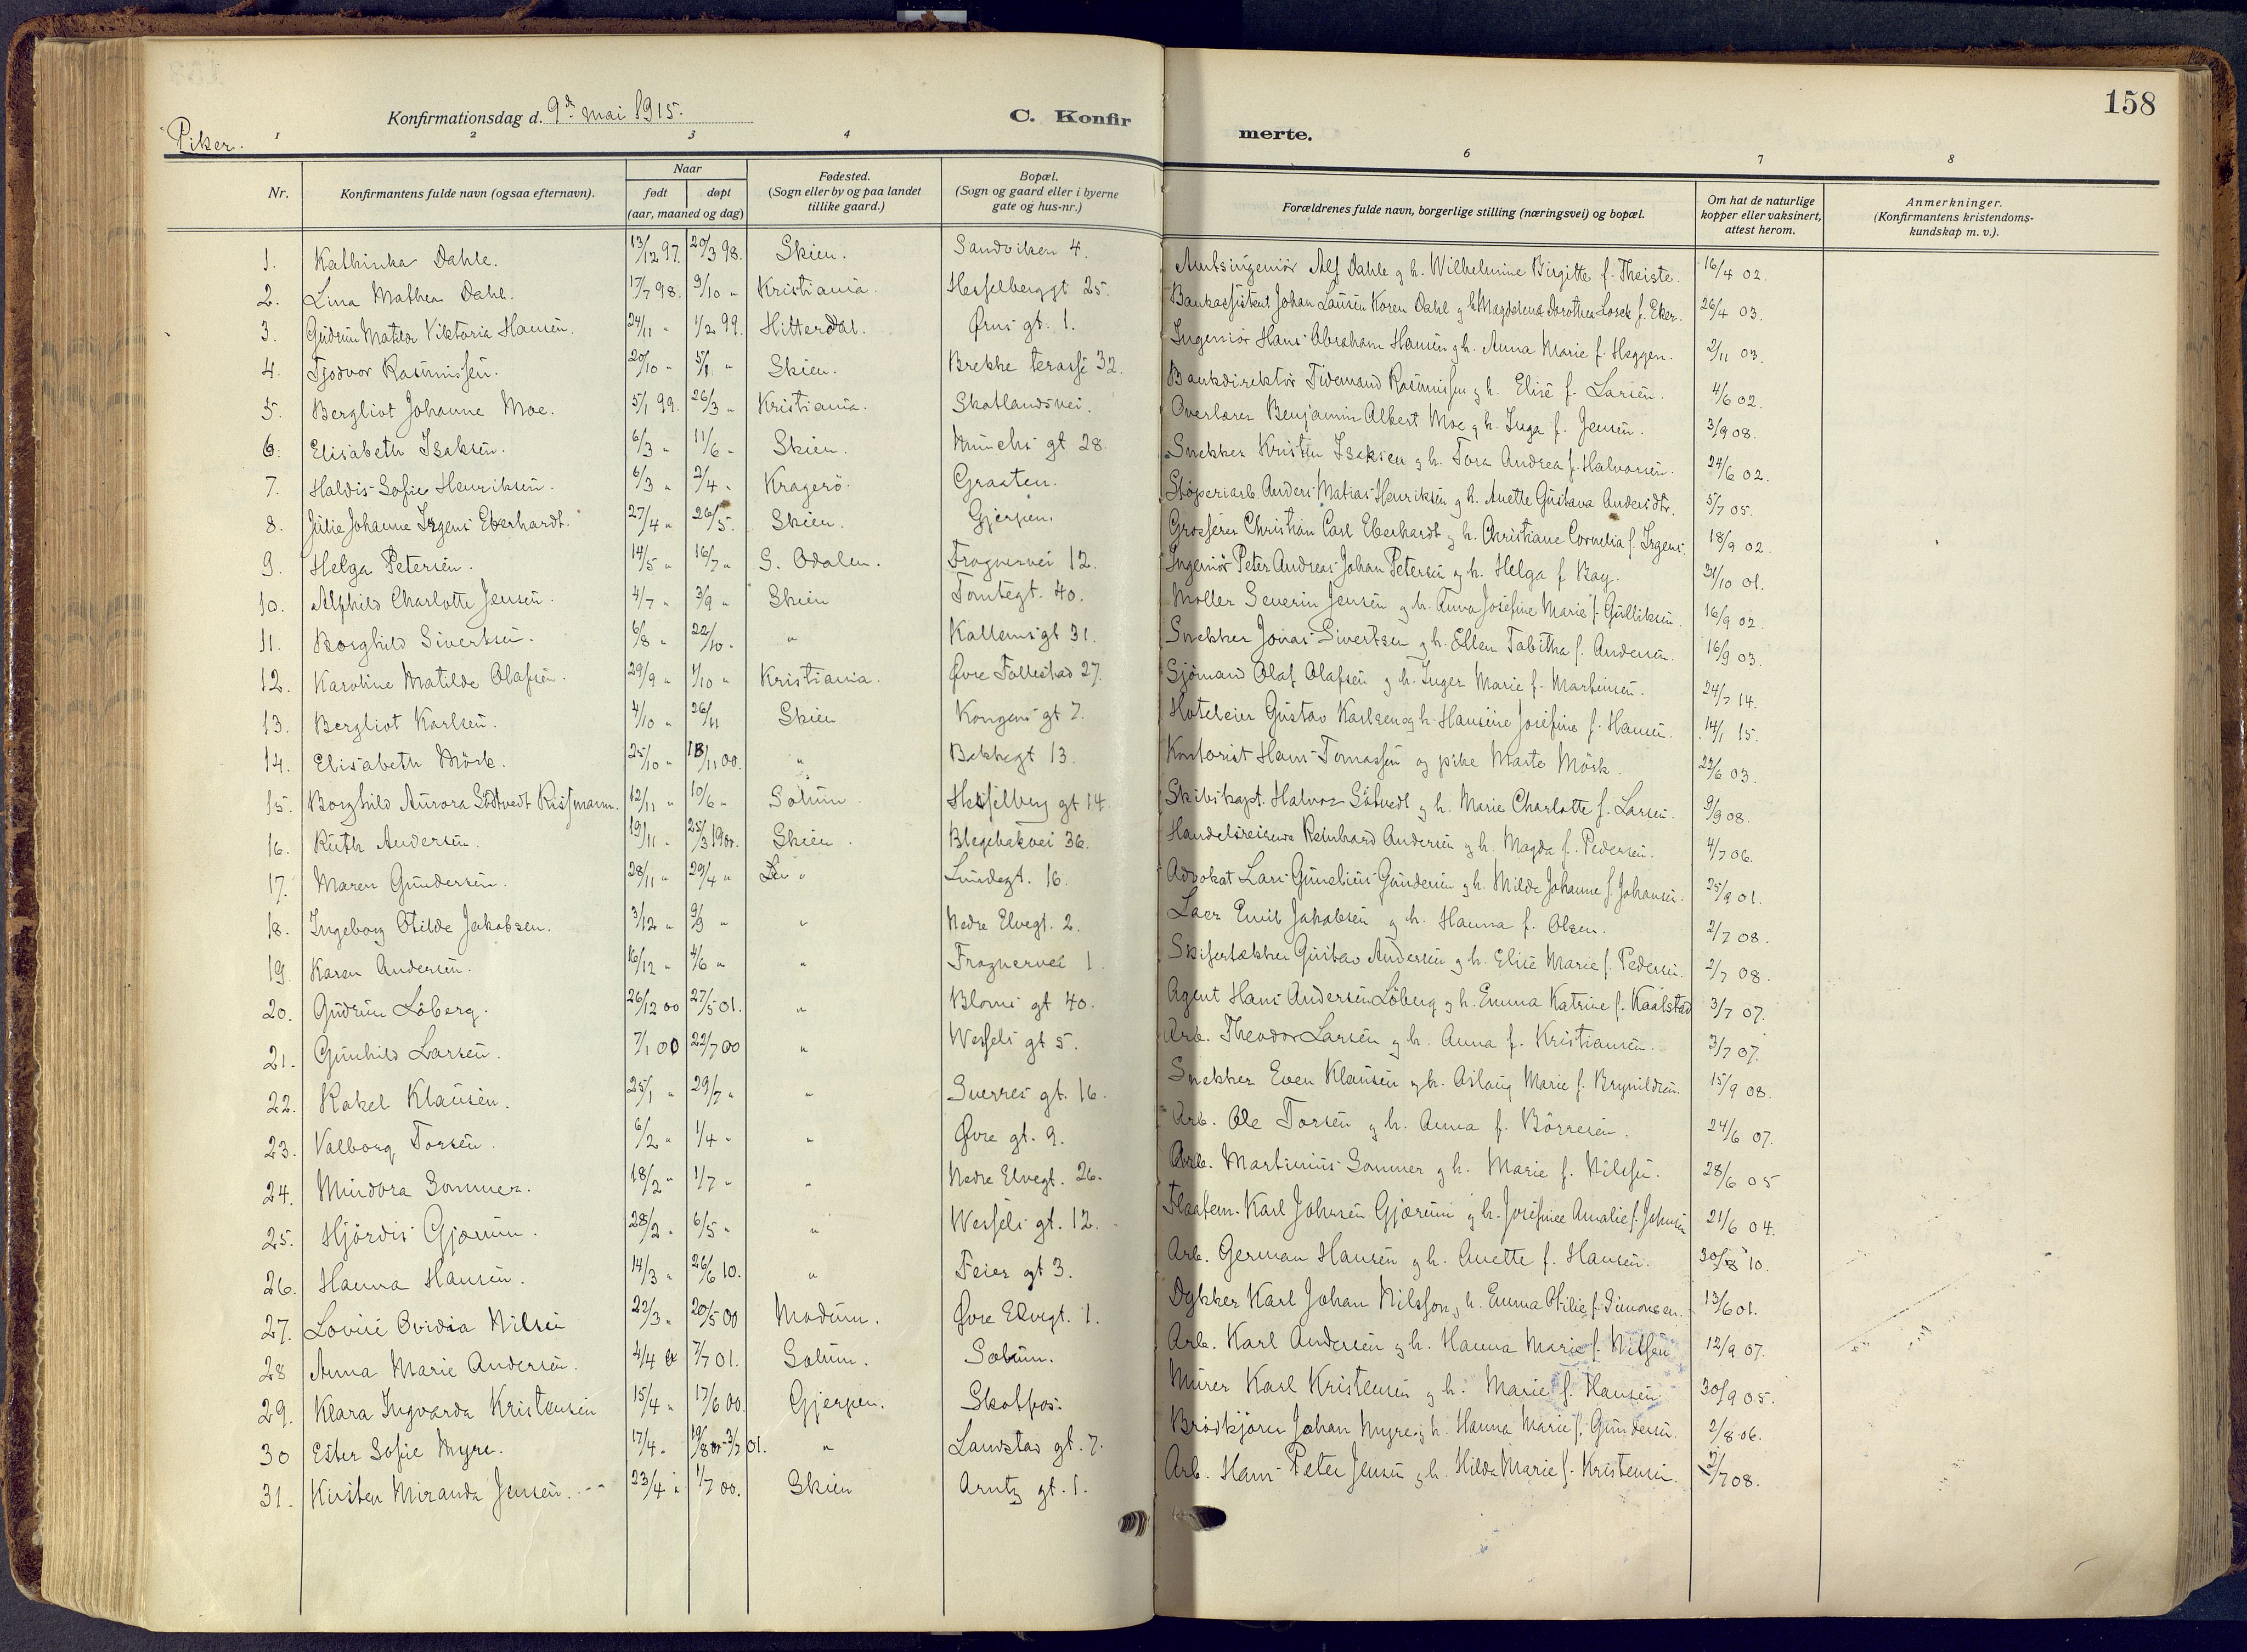 158
Konfirmationsdag d. 9de mai 1915.
C. Konfirmerte.
Piker.
1 2 3 4 6 7 8
Nr. Konfirmantens fulde navn (ogsaa efternavn). Naar født døpt (aar, maaned og dag) Fødested. (Sogn eller by og paa landet tillike gaard.) Bopæl. (Sogn og gaard eller i byerne gate og hus-nr.) Forældrenes fulde navn, borgerlige stilling (næringsvei) og bopæl. Om hat de naturlige kopper eller vaksinert, attest herom. Anmerkninger. (Konfirmantens kristendoms- kundskap m. v.).
1. Kathinka Dahle. 13/12 97. 20/3 98. Skien. Sandviken 4. Amtsingeniör Alf Dahle og h. Wilhelmine Birgitte f. Theiste. 16/4 02.
2. Lina Mathea Dahl. 17/7 98. 9/10 " Kristiania. Hesselberggt 25. Bankassistent Johan Lausen Koren Dahl og h. Magdalena Dorothea f. Eker. 26/4 03.
3. Gudrun Matilde Viktoria Hansen. 24/11 " 1/2 99. Hitterdal. Ørns gt. 1. Ingeniör Hans Abraham Hansen og h. Anna Marie f. Heggen. 2/11 03.
4. Tjodvor Rasmussen. 20/10 " 5/1 " Skien. Brekke terasse 32. Bankdirektör Tidemand Rasmussen og h. Elise f. Larsen. 4/6 02.
5. Bergliot Johanne Moe. 5/1 99. 26/3 " Kristiania. Skotlandsvei. Overlærer Benjamin Albert Moe og h. Inga f. Jensen. 3/9 08.
6. Elisabeth Isaksen. 6/3 " 11/6 " Skien. Munchs gt 28. Snekker Kristen Isaksen og h. Tora Andrea f. Halvorsen. 24/6 02.
7. Haldis Sofie Henriksen. 6/3 " 2/4 " Kragerö. Graaten. Stöperiarb. Anders Matias Henriksen og h. Anette Gustava Andersdtr. 5/7 05.
8. Julie Johanne Irgens Eberhardt. 27/4 " 26/5. Skien. Gjerpen. Grosserer Christian Carl Eberhardt og h. Christiane Cornelia f. Irgens. 18/9 02.
9. Helga Petersen. 14/5 " 16/7 " S. Odalen. Frognervei 12. Ingeniör Peter Andreas Johan Petersen og h. Helga f Bay. 31/10 01.
10. Alfhild Charlotte Jensen. 4/7 " 3/9 " Skien Tomtegt. 40. Möller Severin Jensen og h. Anna Josefine Marie f. Gulliksen. 16/9 02.
11. Borghild Sivertsen. 6/8 " 22/10 " " Kallemsgt 31. Snekker Jonas Sivertsen og h. Ellen Tabitha f. Andersen. 16/9 03.
12. Karoline Matilde Olafsen. 29/9 " 1/10 " Kristiania. Øvre Follestad 27. Sjömand Olaf Olafsen og h. Inger Marie f. Martinsen. 24/7 14.
13. Bergliot Karlsen. 4/10 " 26/11 Skien Kongens gt 7. Hoteleier Gustav Karlsen og h. Hansine Josefine f. Hansen. 14/1 15.
14. Elisabeth Mörk. 25/10 " 18/11 00. " Bekkegt 13. Kontorist Hans Tomassen og pike Marte Mörk. 22/6 03.
15. Borghild Aurora Sötvedt Rissmann. 12/11 " 10/6 " Solum. Hesselberg gt 14. Skibskapt. Halvor Sötvedt og h. Marie Charlotte f. Larsen. 9/9 08.
16. Ruth Andersen. 19/11 " 25/3 1900. Skien. Blegebakvei 36. Handelsreisende Reinhard Andersen og h. Magda f. Pedersen. 4/7 06.
17. Maren Gundersen. 28/11 " 29/4 " " Lundegt. 16. Advokat Lars Gunelius Gundersen og h. Milda Johanne f. Johansen. 25/9 01.
18. Ingeborg Otilde Jakobsen. 3/12 " 9/9 " " Nedre Elvegt. 2. Laer Emil Jakobsen og h. Hanna f. Olsen. 2/7 08.
19. Karen Andersen. 16/12 " 4/6 " " Frognervei 1. Skifertækker Gustav Andersen og h. Elise Marie f. Pedersen. 2/7 08.
20. Gudrun Löberg. 26/12 00 27/5 01. " Bloms gt 40. Agent Hans Andersen Löberg og h. Emma Katrine f. Kaalstad 3/7 07.
21. Gunhild Larsen. 7/1 00 22/7 00 " Wessels gt 5. Arb. Theodor Larsen og h. Anna f. Kristiansen. 3/7 07.
22. Rakel Klausen. 25/1 " 29/7 " " Sverres gt. 16. Snekker Even Klausen og h. Aslaug Marie f. Brynildsen. 15/9 08.
23. Valborg Torsen. 6/2 " 1/4 " " Øvre gt. 9. Arb. Ole Torsen og h. Anna f. Börresen. 24/6 07.
24. Mindora Sommer. 18/2 " 1/7 " " Nedre Elvegt. 26. Arb. Martinius Sommer og h. Marie f. Nilsen. 28/6 05
25. Hjördis Gjærum. 28/2 " 6/5 " " Wessels gt. 12. Flaatem. Karl Johnsen Gjærum og h. Josefine Amalie f. Johnsen 21/6 04.
26. Hanna Hansen. 14/3 " 26/6 10. " Feier gt 3. Arb. German Hansen og h. Anette f. Hansen. 30/8 10.
27. Lovise Ovidia Nilsen 22/3 " 20/5 00 Modum. Øvre Elvegt. 1. Dykker Karl Johan Nilsson og h. Emma Otilie f. Simonsen. 13/6 01.
28 Anna Marie Andersen. 4/4 7/7 01. Solum. Solum. Arb. Karl Andersen og h. Hanna Marie f. Nilsen 12/9 07.
29. Klara Ingvarda Kristensen 15/4 " 17/6 00. Gjerpen. Skotfos. Murer Karl Kristensen og h. Marie f. Hansen. 30/9 05.
30 Ester Sofie Myre. 17/4 " 19/8 00-3/7 01. " Landstad gt. 7. Brödkjörer Johan Myre og h. Hanna Marie f. Gundersen. 2/8 06.
31. Kirsten Miranda Jensen. 23/4 " 1/7 00. Skien Arntz gt. 1. Arb. Hans Peter Jensen og h. Hilda Marie f. Kristensen. 2/7 08.